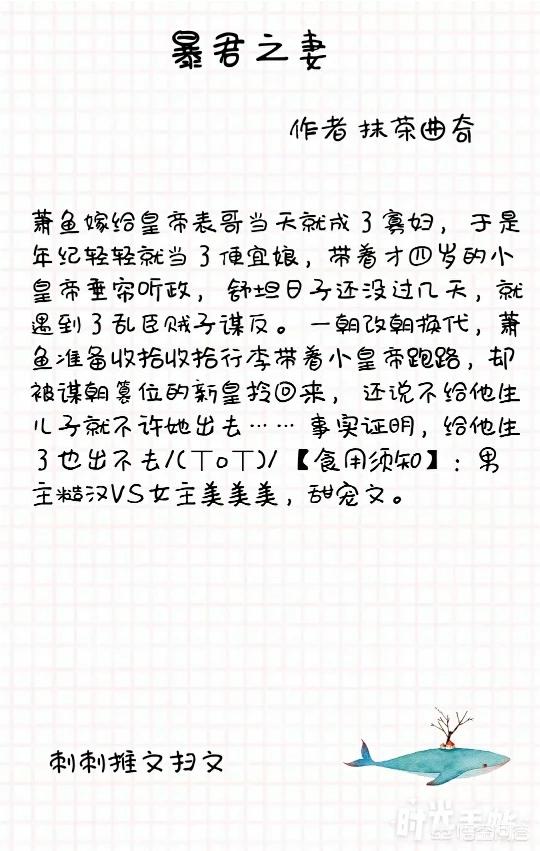 暴君之妻
作者 抹茶曲奇
萧鱼嫁给皇帝表哥当天就成了寡妇，于是
年纪轻轻就当了便宜娘，带着才四岁的小
皇帝垂帘听政，舒坦日子还没过几天，就
遇到了乱臣贼子谋反。一朝改朝换代，萧
鱼准备收拾收拾行李带着小皇帝跑路，却
被谋朝篡位的新皇拎回来，还说不给他生
儿子就不许她出去……事实证明，给他生
了也出不去/(ToT)/【食用须知】：男
主糙汉VS女主美美美，甜宠文。
刺刺推文扫文
时光手帐
悟空问答